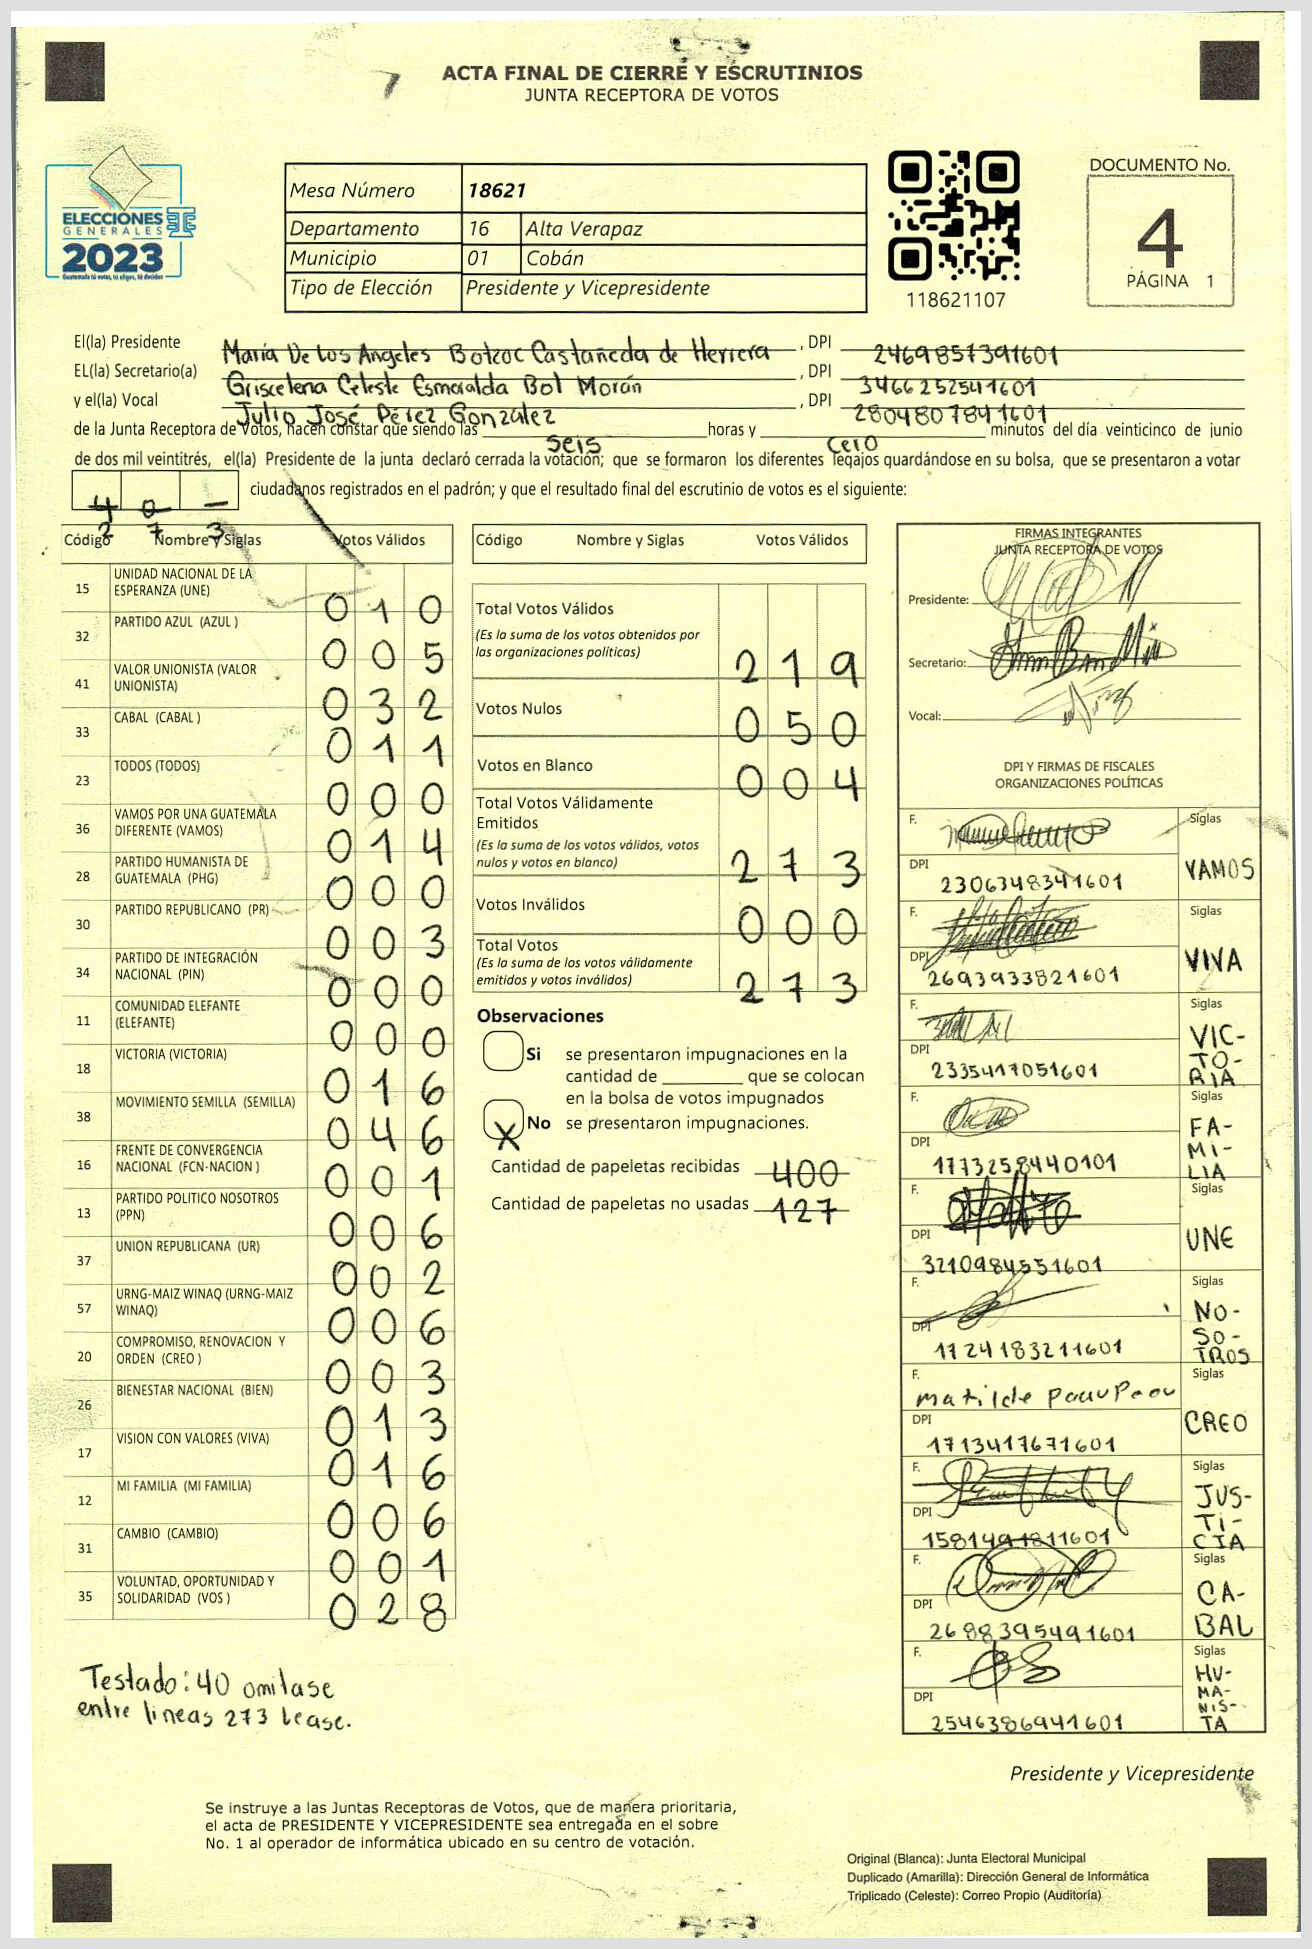 ACTA FINAL DE CIERRE Y ESCRUTINIOS
JUNTA RECEPTORA DE VOTOS
ELECCIONES
GENERALES
2023
Guatemala tú votas, tú eliges, tú decides
Mesa Número 18621
Departamento 16 Alta Verapaz
Municipio 01 Cobán
Tipo de Elección Presidente y Vicepresidente
118621107
DOCUMENTO No.
4
PÁGINA 1
El(la) Presidente María De Los Angeles Botzoc Castañeda de Herrera, DPI 2469857391601
EL(la) Secretario(a) Griscelena Celeste Esmeralda Bol Morán, DPI 3466252541601
y el(la) Vocal Julio José Pérez Gonzalez, DPI 2804807841601
de la Junta Receptora de Votos, hacen constar que siendo las seis horas y cero minutos del día veinticinco de junio
de dos mil veintitrés, el(la) Presidente de la junta declaró cerrada la votación; que se formaron los diferentes legajos guardándose en su bolsa, que se presentaron a votar
4 0 –
2 7 3
ciudadanos registrados en el padrón; y que el resultado final del escrutinio de votos es el siguiente:
Código Nombre y Siglas Votos Válidos
15 UNIDAD NACIONAL DE LA ESPERANZA (UNE) 010
32 PARTIDO AZUL (AZUL ) 005
41 VALOR UNIONISTA (VALOR UNIONISTA) 032
33 CABAL (CABAL ) 011
23 TODOS (TODOS) 000
36 VAMOS POR UNA GUATEMALA DIFERENTE (VAMOS) 014
28 PARTIDO HUMANISTA DE GUATEMALA (PHG) 000
30 PARTIDO REPUBLICANO (PR) 003
34 PARTIDO DE INTEGRACIÓN NACIONAL (PIN) 000
11 COMUNIDAD ELEFANTE (ELEFANTE) 000
18 VICTORIA (VICTORIA) 016
38 MOVIMIENTO SEMILLA (SEMILLA) 046
16 FRENTE DE CONVERGENCIA NACIONAL (FCN-NACION ) 001
13 PARTIDO POLITICO NOSOTROS (PPN) 006
37 UNION REPUBLICANA (UR) 002
57 URNG-MAIZ WINAQ (URNG-MAIZ WINAQ) 006
20 COMPROMISO, RENOVACION Y ORDEN (CREO ) 003
26 BIENESTAR NACIONAL (BIEN) 013
17 VISION CON VALORES (VIVA) 016
12 MI FAMILIA (MI FAMILIA) 006
31 CAMBIO (CAMBIO) 001
35 VOLUNTAD, OPORTUNIDAD Y SOLIDARIDAD (VOS ) 028
Testado: 40 omitase
entre lineas 273 lease.
Código Nombre y Siglas Votos Válidos
Total Votos Válidos 219
(Es la suma de los votos obtenidos por
las organizaciones políticas)
Votos Nulos 050
Votos en Blanco 004
Total Votos Válidamente
Emitidos
(Es la suma de los votos válidos, votos
nulos y votos en blanco) 273
Votos Inválidos 000
Total Votos
(Es la suma de los votos válidamente
emitidos y votos inválidos) 273
Observaciones
Si se presentaron impugnaciones en la
cantidad de ________ que se colocan
en la bolsa de votos impugnados
X No se presentaron impugnaciones.
Cantidad de papeletas recibidas 400
Cantidad de papeletas no usadas 127
FIRMAS INTEGRANTES
JUNTA RECEPTORA DE VOTOS
Presidente:
Secretario:
Vocal:
DPI Y FIRMAS DE FISCALES
ORGANIZACIONES POLÍTICAS
F. Siglas
DPI 2306348341601 VAMOS
F. Siglas
DPI 2693933821601 VIVA
F. Siglas
DPI 2335417051601 VIC-TO-RIA
F. Siglas
DPI 1773258440101 FA-MI-LIA
F. Siglas
DPI 3210984551601 UNE
F. Siglas
DPI 1724183211601 NO-SO-TROS
F. matilde Siglas
DPI 1713417671601 CREO
F. Siglas
DPI 1581491811601 JUS-Ti-CIA
F. Siglas
DPI 2688395491601 CA-BAL
F. Siglas
DPI 2546386941601 HU-MA-NIS-TA
Presidente y Vicepresidente
Se instruye a las Juntas Receptoras de Votos, que de manera prioritaria,
el acta de PRESIDENTE Y VICEPRESIDENTE sea entregada en el sobre
No. 1 al operador de informática ubicado en su centro de votación.
Original (Blanca): Junta Electoral Municipal
Duplicado (Amarilla): Dirección General de Informática
Triplicado (Celeste): Correo Propio (Auditoría)